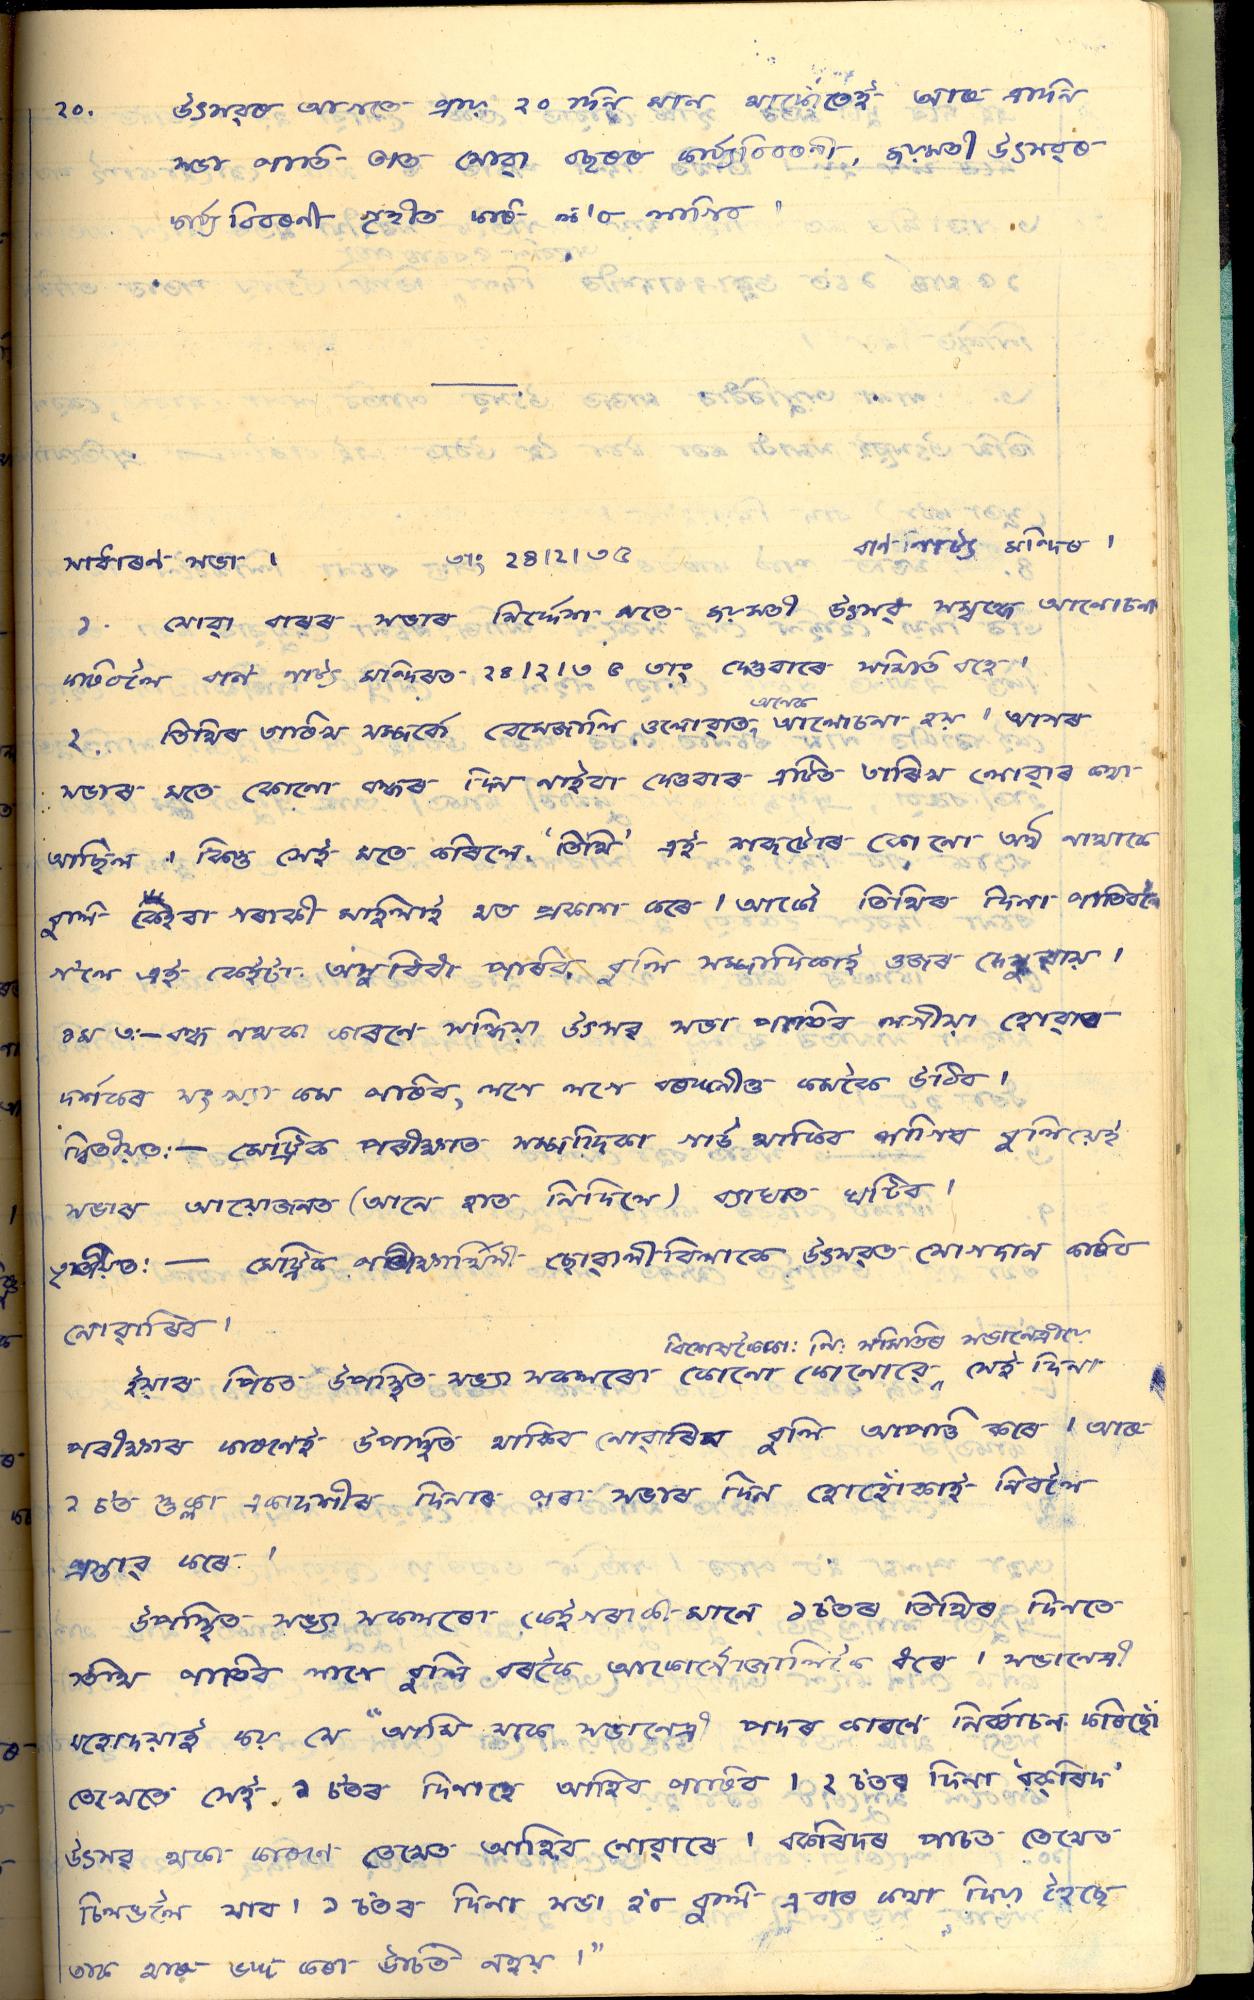 ২০. উৎসৱৰ আগতে প্ৰায় ২০ দিন মান মাথোঁতেই আৰু এদিন
সভা পাতি তাত যোৱা বছৰৰ কাৰ্য্যবিবৰণী, জয়মতী উৎসৱৰ
কাৰ্য্যবিবৰণী গৃহীত কৰি ল'ব লাগিব।
সাধাৰণ সভা। তাং ২৪।২।৩৫ বাণ নাট্য মন্দিৰ।
১. যোৱা বাৰৰ সভাৰ নিৰ্দ্দেশ মতে জয়মতী উৎসৱ সম্বন্ধে আলোচনা
কৰিবলৈ বাণ নাট্য মন্দিৰত ২৪।২।৩৫ তাং দেওবাৰে সমিতি বহে।
২. তিথিৰ তাৰিখ সম্পৰ্কে বেমেজালি ওলোৱাত অনেক আলোচনা হয়। আগৰ
সভাৰ মতে কোনো বন্ধৰ দিন নাইবা দেওবাৰ এটিত তাৰিখ লোৱাৰ কথা
আছিল। কিন্তু সেই মতে কৰিলে 'তিথি' এই শব্দটোৰ কোনো অৰ্থ নাথাকে
বুলি কেইবা গৰাকী মহিলাই মত প্ৰকাশ কৰে। আকৌ তিথিৰ দিনা পাতিবলৈ
গ'লে এই কেইটা অসুবিধা পাৰিব বুলি সম্পাদিকাই ওজৰ দেখুৱায়।
১ম তঃ— বন্ধ নথকা কাৰণে সন্ধিয়া উৎসৱ সভা পাতিব লগীয়া হোৱাত
দৰ্শকৰ সংখ্যা কম পৰিব, লগে লগে বৰঙনীও কমকৈ উঠিব।
দ্বিতীয়তঃ— মেট্ৰিক পৰীক্ষাত সম্পাদিকা গাৰ্ড থাকিব লাগিব বুলিয়েই
সভাৰ আয়োজনত (আনে হাত নিদিলে) ব্যাঘাত ঘটিব।
তৃতীয়তঃ— মেট্ৰিক পৰীক্ষাৰ্থিনী ছোৱালীবিলাকে উৎসৱত যোগদান কৰিব
নোৱাৰিব।
ইয়াৰ পিচত উপস্থিত সভ্যা সকলৰো কোনো কোনোৱে, বিশেষকৈ জিঃ মঃ সমিতিৰ সভানেত্ৰীয়ে সেই দিনা
পৰীক্ষাৰ কাৰণেই উপস্থিত থাকিব নোৱাৰিব বুলি আপত্তি কৰে। আৰু
২ চ'ত শুক্লা একাদশীৰ দিনাৰ পৰা সভাৰ দিন হোহোঁকাই নিবলৈ
প্ৰস্তাৱ কৰে।
উপস্থিত সভ্যা সকলৰো কেইগৰাকী মানে ১ চ'তৰ তিথিৰ দিনতে
তিথি পাতিব লাগে বুলি বৰকৈ আকোৰ্গোজালিকৈ ধৰে। সভানেত্ৰী
মহোদয়াই কয় যে "আমি যাকে সভানেত্ৰী পদৰ কাৰণে নিৰ্ব্বাচন কৰিছোঁ
তেখেতে সেই ১ চ'তৰ দিনাহে আহিব পাৰিব। ২ চ'তৰ দিনা 'বক্ৰিদ'
উৎসৱ থকা কাৰণে তেখেত আহিব নোৱাৰে। বক্ৰিদৰ পাচত তেখেত
চিলঙলৈ যাব। ১ চ'তৰ দিনা সভা হ'ব বুলি এবাৰ কথা দিয়া হৈছে
তাক আৰু ভঙ্গ কৰা উচিত নহয়।"